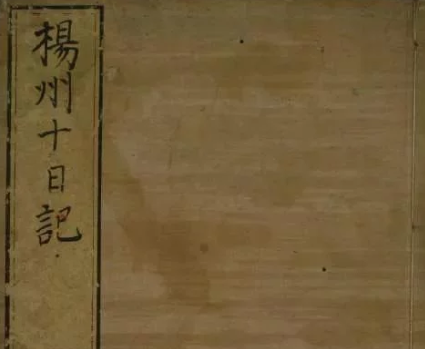 楊州十日記